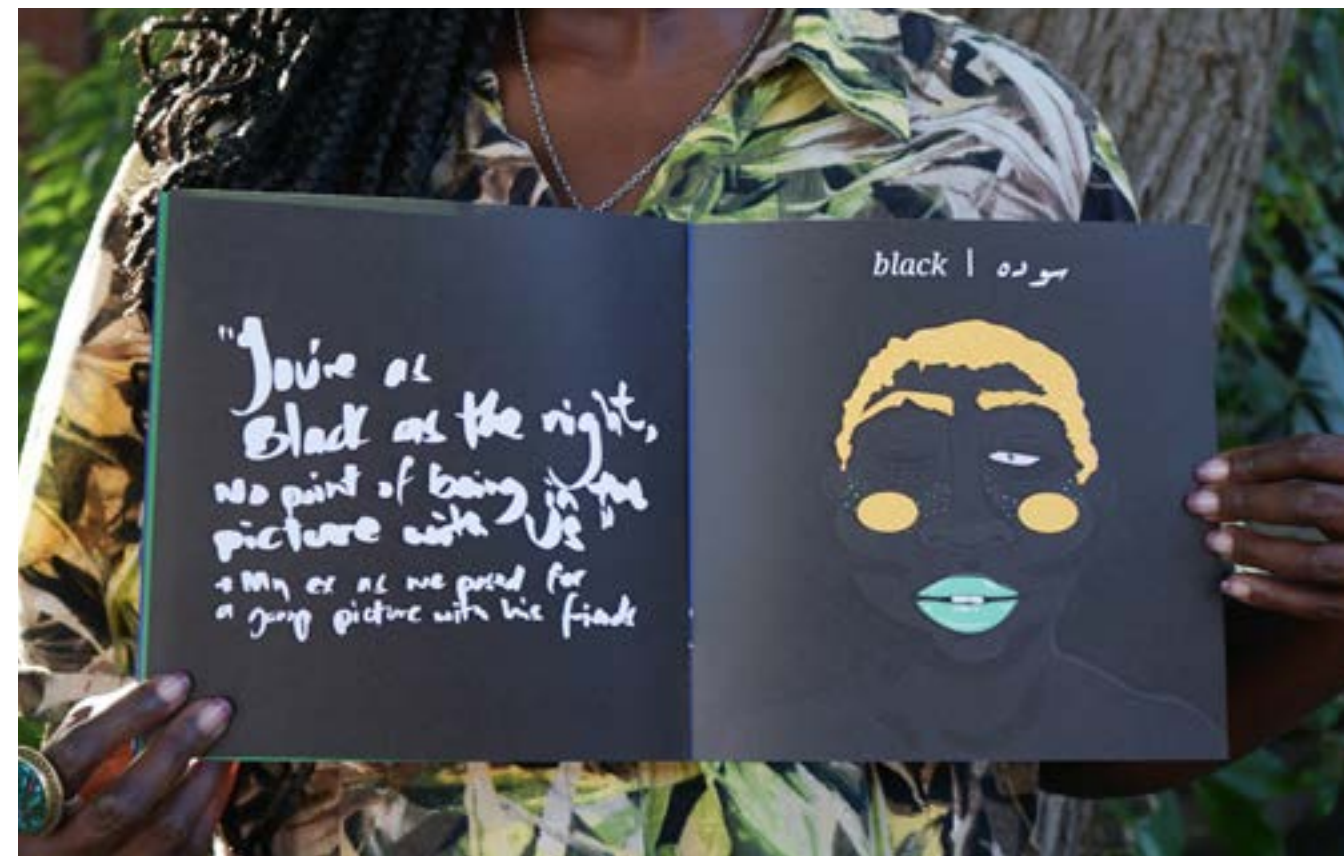 "You're as
Black as the night,
No point of being in the
picture with Us"
+ My ex as we posed for
a group picture with his friends
black | سوده